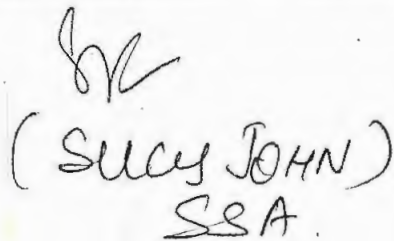 (SUCY JOHN)
SSA.